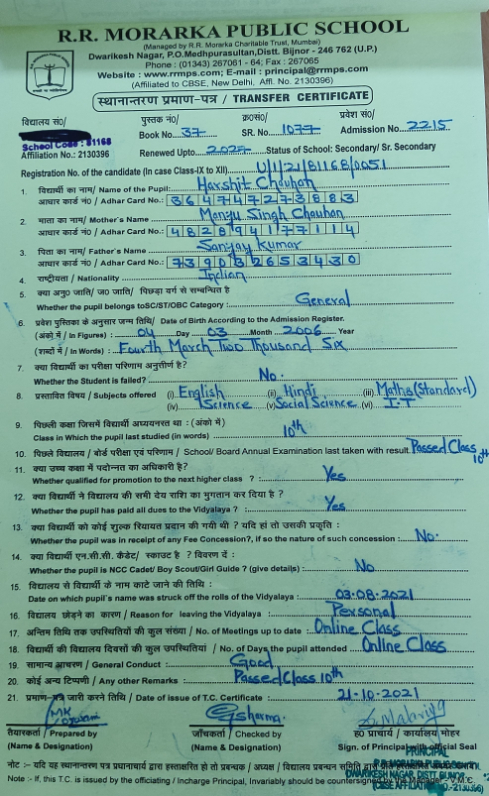 R.R. MORARKA PUBLIC SCHOOL
(Managed by R.R. Morarka Charitable Trust, Mumbai)
Dwarikesh Nagar, P.O.Medhpurasultan,Distt. Bijnor - 246 762 (U.P.)
Phone : (01343) 267061 - 64; Fax : 267065
Website : www.rrmps.com; E-mail : principal@rrmps.com
(Affiliated to CBSE, New Delhi, Affl. No. 2130396)
स्थानान्तरण प्रमाण-पत्र / TRANSFER CERTIFICATE
विद्यालय सं०/ पुस्तक नं०/ क्र०सं०/ प्रवेश सं०/
Book No. 37 SR. No. 1077 Admission No. 2215
School Code : 81168
Affiliation No. : 2130396 Renewed Upto 2027 Status of School: Secondary/ Sr. Secondary
Registration No. of the candidate (in case Class-IX to XII) U/1/21/81168/0051
1. विद्यार्थी का नाम/ Name of the Pupil: Harshit Chauhan
आधार कार्ड नं०/ Adhar Card No.: 364747273883
2. माता का नाम/ Mother's Name Manju Singh Chauhan
आधार कार्ड नं०/ Adhar Card No.: 482894177114
3. पिता का नाम/ Father's Name Sanjay Kumar
आधार कार्ड नं०/ Adhar Card No.: 739032653430
4. राष्ट्रीयता / Nationality Indian
5. क्या अनु० जाति/ ज० जाति/ पिछड़ा वर्ग से सम्बन्धित है
Whether the pupil belongs toSC/ST/OBC Category : General
6. प्रवेश पुस्तिका के अनुसार जन्म तिथि/ Date of Birth According to the Admission Register.
(अंको में / In Figures) : 04 Day 03 Month 2006 Year
(शब्दों में / In Words) : Fourth March Two Thousand Six
7. क्या विद्यार्थी का परीक्षा परिणाम अनुत्तीर्ण है?
Whether the Student is failed? No.
8. प्रस्तावित विषय / Subjects offered (i) English (ii) Hindi (iii) Maths (Standard)
(iv) Science (v) Social Science (vi) I.T
9. पिछली कक्षा जिसमें विद्यार्थी अध्ययनरत था : (अंको में)
Class in Which the pupil last studied (in words) 10th
10. पिछले विद्यालय / बोर्ड परीक्षा एवं परिणाम / School/ Board Annual Examination last taken with result Passed Class 10th
11. क्या उच्च कक्षा में पदोन्नत का अधिकारी है?
Whether qualified for promotion to the next higher class ? : Yes
12. क्या विद्यार्थी ने विद्यालय की सभी देय राशि का भुगतान कर दिया है ?
Whether the pupil has paid all dues to the Vidyalaya ? : Yes
13. क्या विद्यार्थी को कोई शुल्क रियायत प्रदान की गयी थी ? यदि हां तो उसकी प्रकृति :
Whether the pupil was in receipt of any Fee Concession?, if so the nature of such concession : No.
14. क्या विद्यार्थी एन.सी.सी. कैडेट/ स्काउट है ? विवरण दें :
Whether the pupil is NCC Cadet/ Boy Scout/Girl Guide ? (give details) : No
15. विद्यालय से विद्यार्थी के नाम काटे जाने की तिथि :
Date on which pupil's name was struck off the rolls of the Vidyalaya : 03-08-2021
16. विद्यालय छोड़ने का कारण / Reason for leaving the Vidyalaya : Personal
17. अन्तिम तिथि तक उपस्थितियों की कुल संख्या / No. of Meetings up to date : Online Class
18. विद्यार्थी की विद्यालय दिवसों की कुल उपस्थितियां / No. of Days the pupil attended Online Class
19. सामान्य आचरण / General Conduct : Good
20. कोई अन्य टिप्पणी / Any other Remarks : Passed Class 10th
21. प्रमाण-पत्र जारी करने तिथि / Date of issue of T.C. Certificate : 21-10-2021
तैयारकर्ता / Prepared by जाँचकर्ता / Checked by ह0 प्राचार्य / कार्यालय मोहर
(Name & Designation) (Name & Designation) Sign. of Principal with official Seal
PRINCIPAL
R.R. MORARKA PUBLIC SCHOOL
नोट :- यदि यह स्थानान्तरण पत्र प्रधानाचार्य द्वारा हस्ताक्षरित हो तो प्रबन्धक / अध्यक्ष / विद्यालय प्रबन्धन समिति द्वारा
DWARIKESH NAGAR, DISTT. BIJNOR
Note :- If, this T.C. is issued by the officiating / Incharge Principal, Invariably should be countersigned by the Manager - V.M.C.
(CBSE AFFILIATION NO.-2130396)